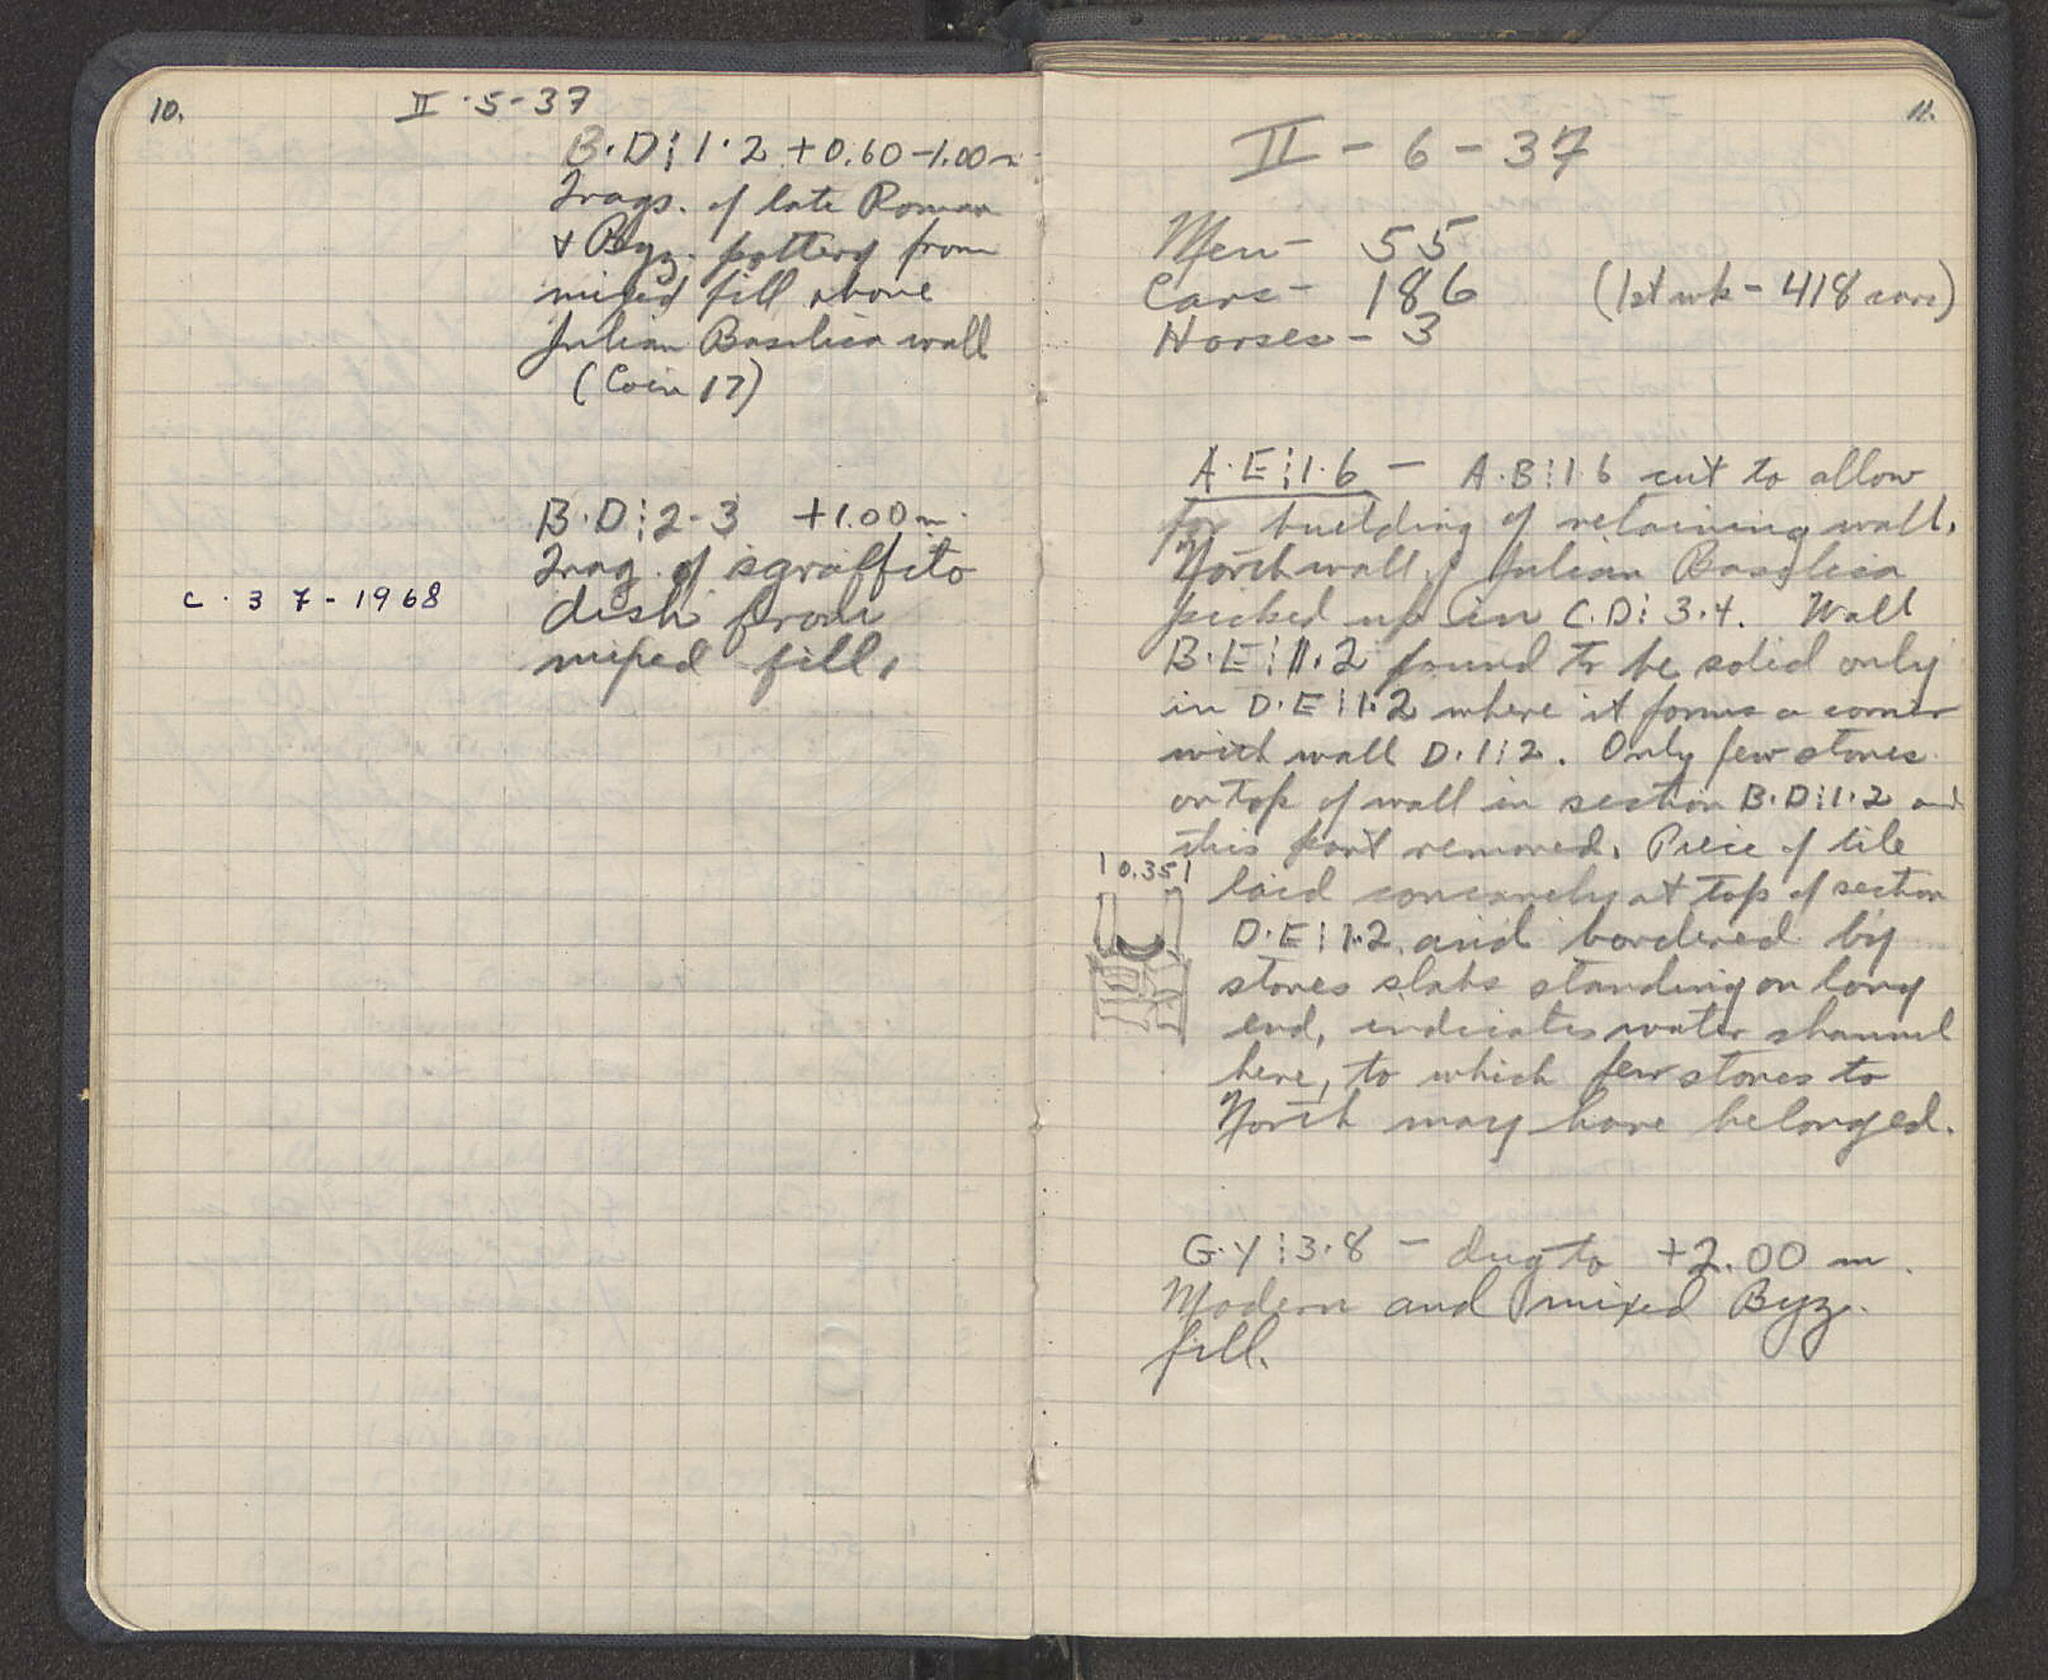 10.
II · 5 - 37
B·D⋮1·2 +0.60-1.00m
Frags. of late Roman
& Byz. pottery from
mixed fill above
Julian Basilica wall
(Coin 17)
B·D⋮2-3 +1.00m.
Frag. of sgraffito
dish from
mixed fill.
C. 37-1968
11.
II - 6 - 37
Men - 55
Cars - 186 (1st wk - 418 cars)
Horses - 3
A·E⋮1·6 - A·B⋮1·6 cut to allow
for building of retaining wall.
North wall of Julian Basilica
picked up in C.D⋮3.4. Wall
B·E⋮1·2 found to be solid only
in D·E⋮1·2 where it forms a corner
with wall D·1⋮2. Only few stones
on top of wall in section B·D⋮1·2 and
this part removed. Piece of tile
laid concavely at top of section
D·E⋮1·2 and bordered by
stones slabs standing on long
end, indicates water channel
here, to which few stones to
North may have belonged.
0.35
G·Y⋮3·8 - dug to +2.00 m.
Modern and mixed Byz.
fill.